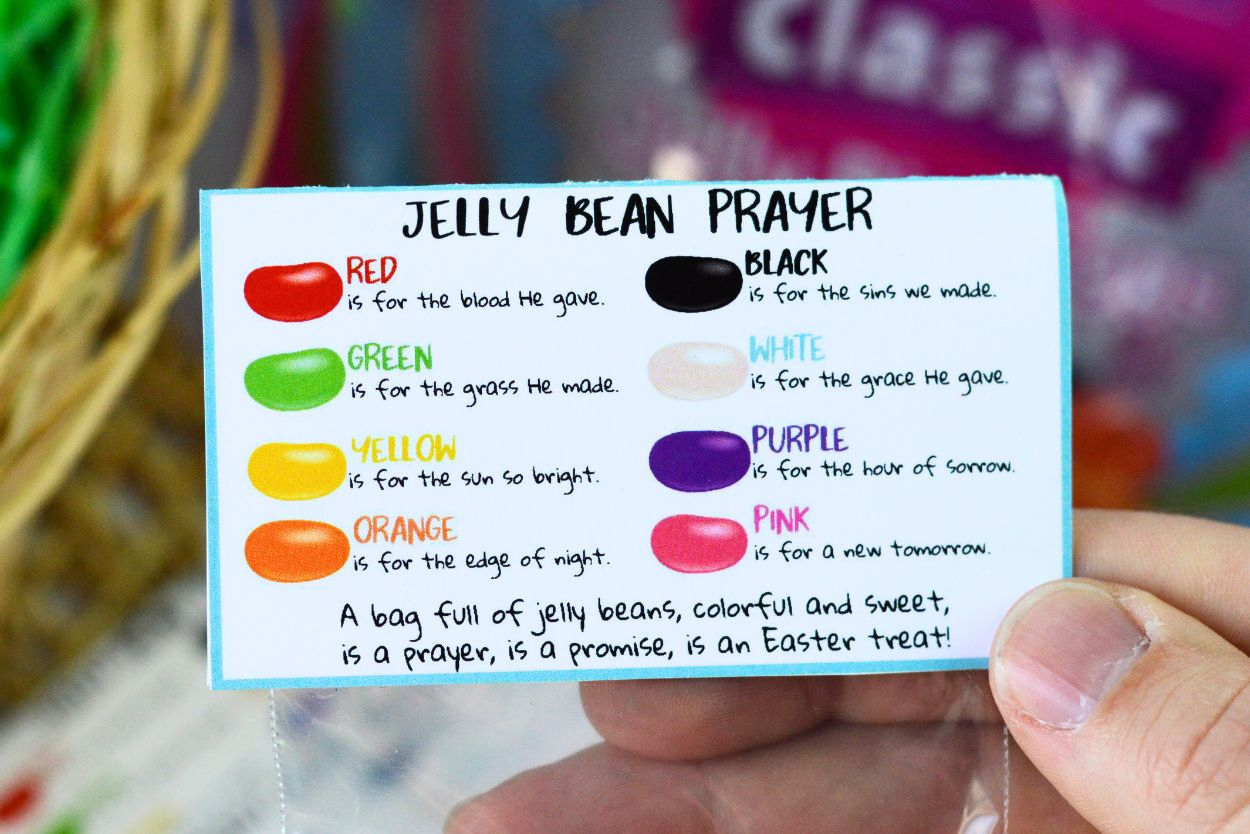 classic
JELLY BEAN PRAYER
RED
is for the blood He gave.
GREEN
is for the grass He made.
YELLOW
is for the sun so bright.
ORANGE
is for the edge of night.
BLACK
is for the sins we made.
WHITE
is for the grace He gave.
PURPLE
is for the hour of sorrow.
PINK
is for a new tomorrow.
A bag full of jelly beans, colorful and sweet,
is a prayer, is a promise, is an Easter treat!